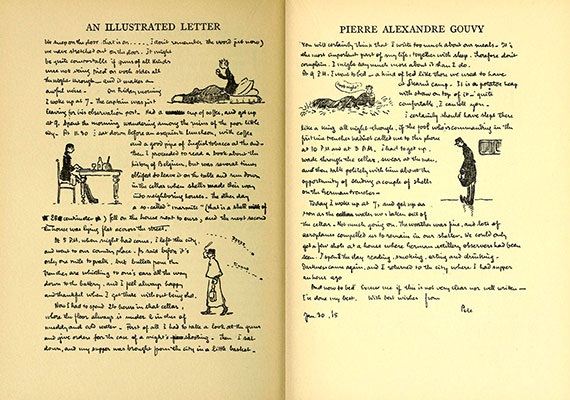 AN ILLUSTRATED LETTER
We sleep on the door, that is on .... I don't remember the word just now)
we were stretched out on the door. It might
be quite comfortable if guns of all kinds
was not being fired on both sides all
the night through — and it makes an
awful noise. On Friday morning
I woke up at 7. The captain was just
leaving for his observation post. Had a cup of coffee, and got up
at 9. Spent the morning wandering among the ruins of the poor little
city. At 11.30 I sat down before an exquisite luncheon, with coffee
and a good pipe of English tobacco at the end —
then I proceeded to read a book about the
history of Belgium, but was several times
obliged to leave it on the table and run down
in the cellar when shells made their way
into neighboring houses. The other day
a so-called "marmite" (that is a shell
28 centimeter) fell on the house next to ours, and the next second
the house was lying flat across the street.
At 5 P.M. when night had come, I left the city
and went to our country place. I hate before it's
only one mile to walk, but bullets from the
trenches are whistling to one's ears all the way
down to the battery, and I feel always happy
and thankful when I get there without being shot.
Now I had to spend 24 hours in that cellar
where the floor always is under 2 inches of
muddy and cold water. First of all I had to take a look at the guns
and give orders for the case of a night's shooting. Then I sat
down, and my supper was brought from the city in a little basket.
PIERRE ALEXANDRE GOUVY
You will certainly think that I write too much about our meals. It's
the most important part of my life: together with sleep. Therefore don't
complain. I might say much more about it than I do.
At 9 P.M. I went to bed — a kind of bed like those we used to have
in Stearns' camp. It is a potato heap
with straw on top of it — quite
comfortable, I assure you.
Good night!
I certainly should have slept there
like a king all night though, if the fool who's commanding in the
first in trenches hadn't called me to the phone
at 10 P.M. and at 3 A.M. I had to get up,
wade through the cellar, swear at the man,
and then talk politely with him about the
opportunity of sending a couple of shells
on the German trenches —
Today I woke up at 7, and got up as
soon as the water was taken out of
the cellar. Not much going on. The weather was fine, and lots of
aeroplanes compelled us to remain in our shelter. We could only
get a few shots at a house where German artillery observers had been
seen. I spent the day reading, smoking, eating and drinking.
Darkness came again, and I returned to the city where I had supper
an hour ago
And now to bed. Excuse me if this is not very clear nor well written —
I've done my best. With best wishes from
Pete
Jan. 30, 15